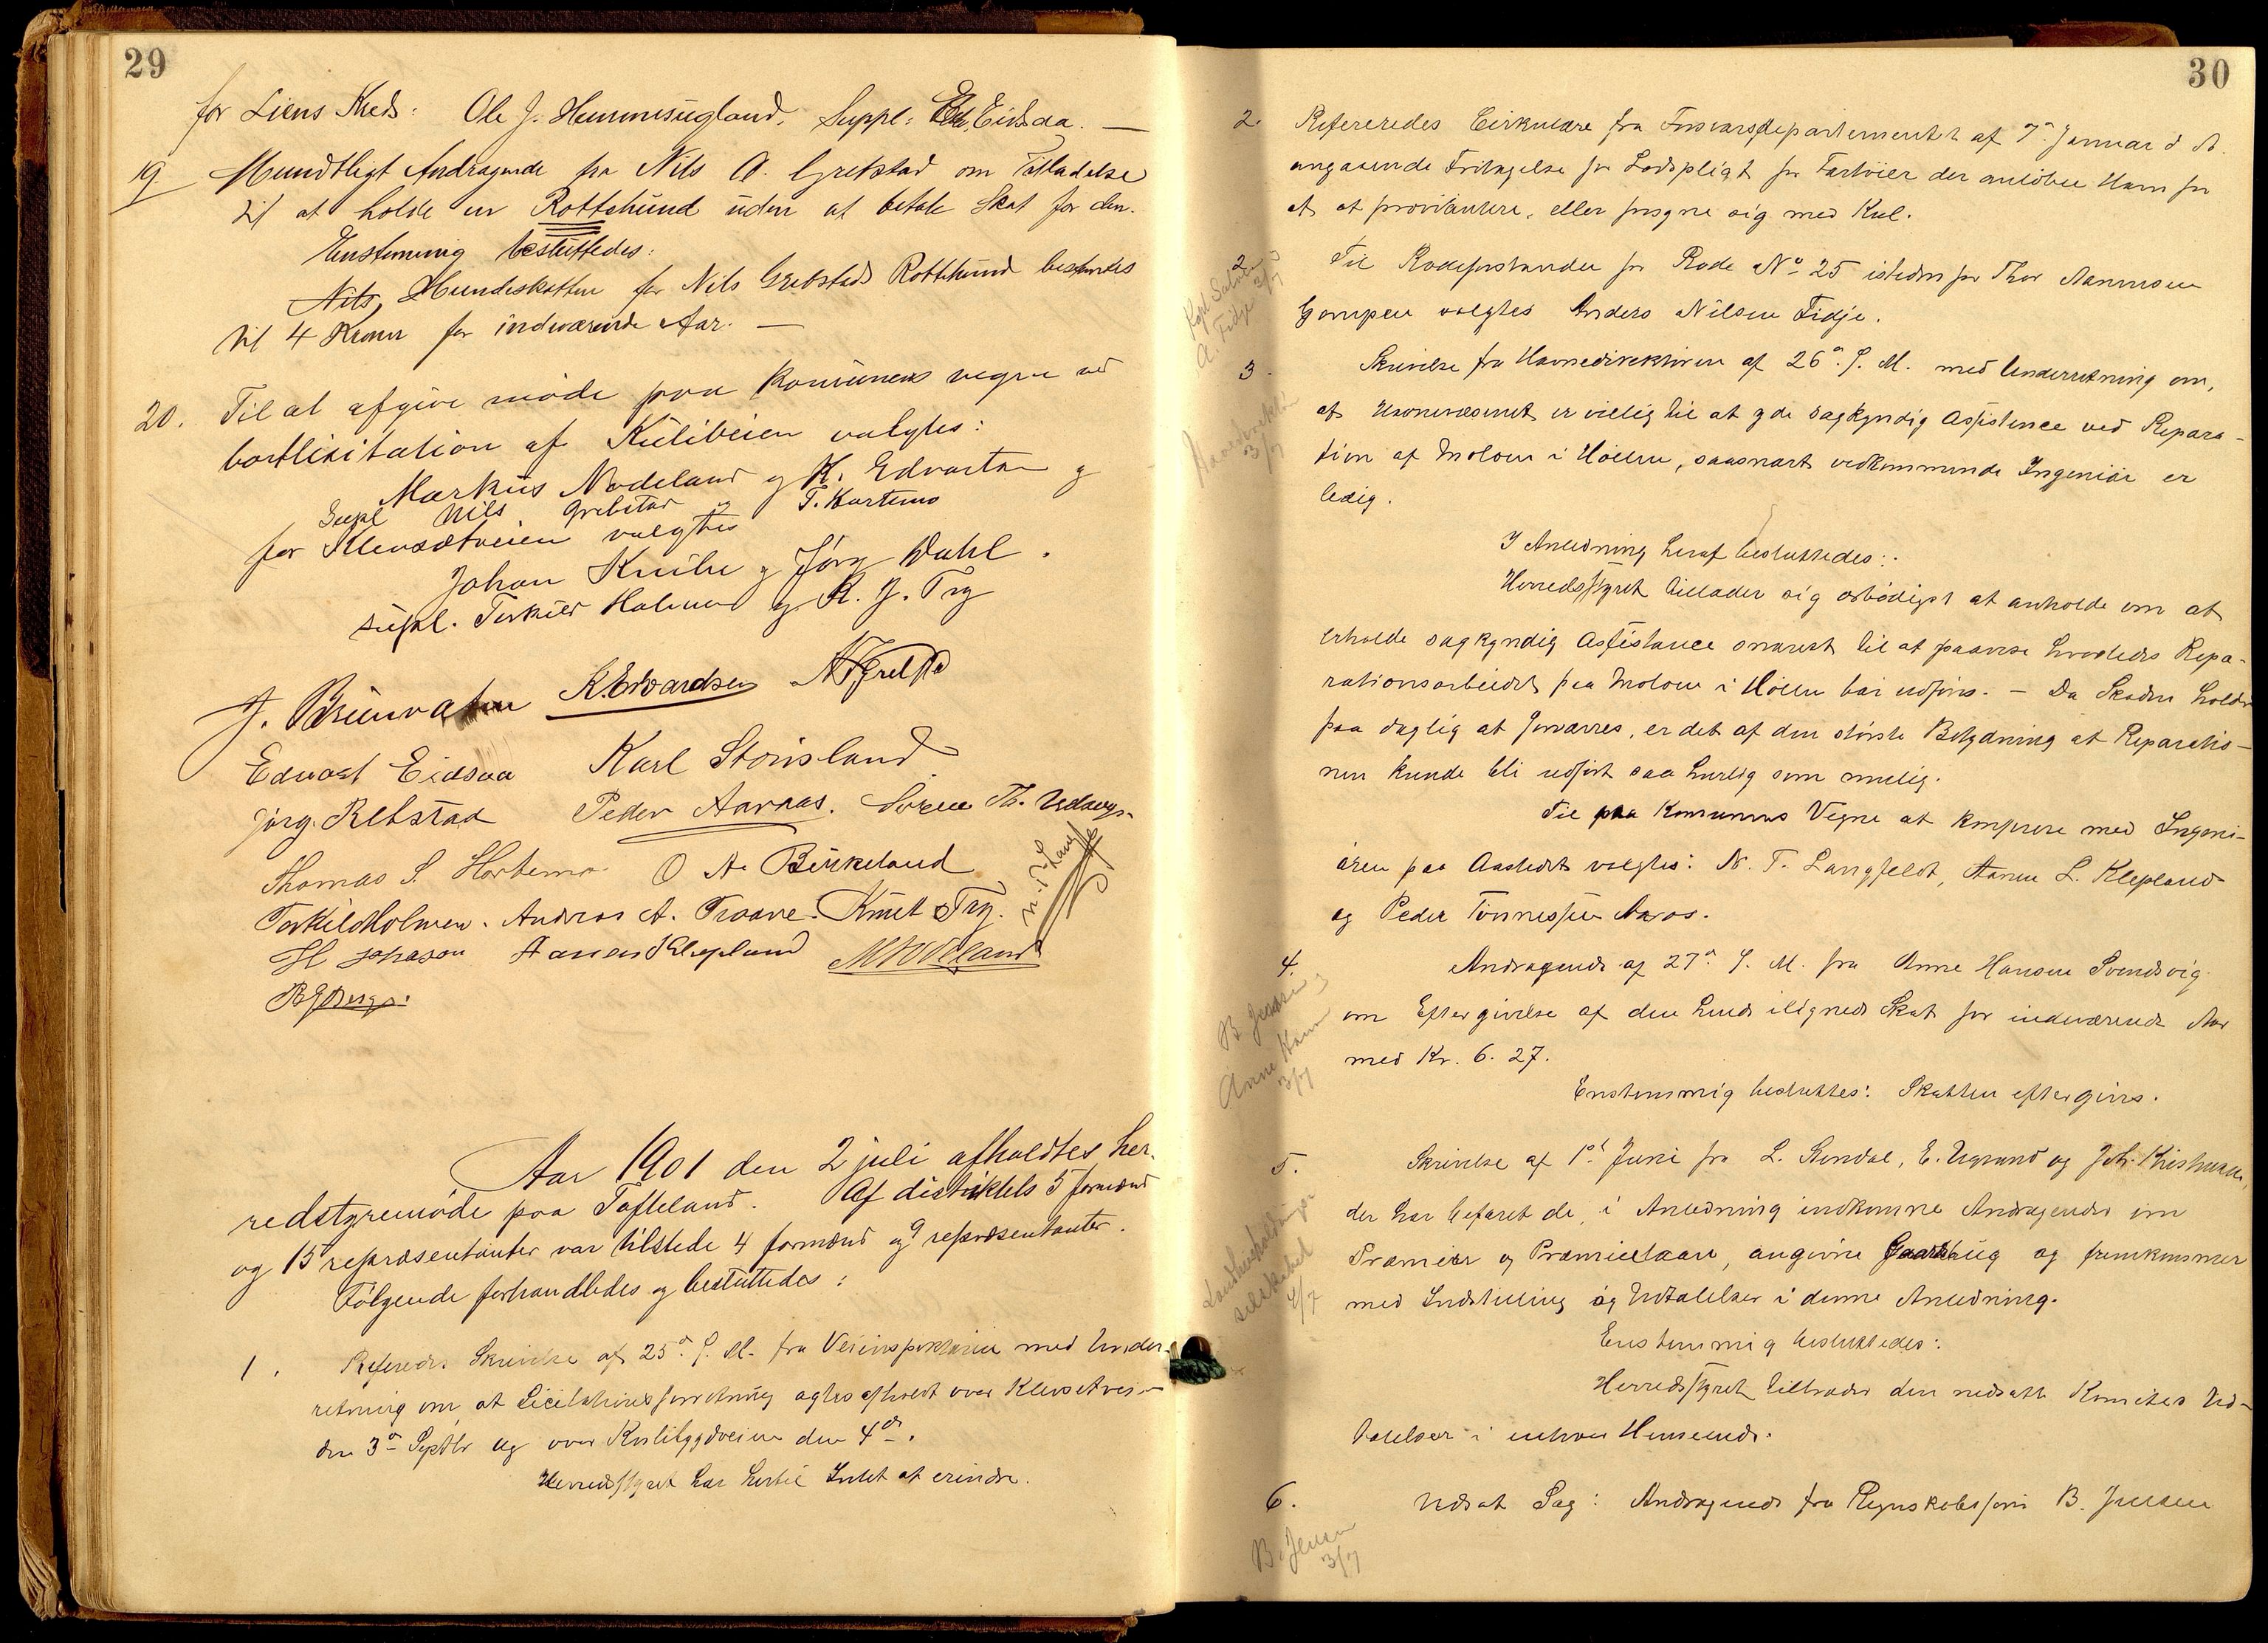 29
for Liens Kreds: Ole J. Hunnesugland, Suppl: Ed. Eidsaa. —
19. Mundtligt Andragende fra Nils A. Grebstad om Tilladelse
til at holde en Rottehund uden at betale Skat for den.
Enstemmig besluttedes:
Nils Hundeskatten for Nils Grebstads Rottehund bestemtes
til 4 Kroner for indeværende Aar. —
20. Til at afgive møde paa komunens vegne ved
bortlisitation af Kulibeien valgtes:
Markus Nodeland og K. Edvartsen og
Supl Nils Grebstad og T. Hortemo
for Klevsætveien valgtes
Johan Knibe og Jørg Dahl.
supl. Torkild Holmen og K. J. Try
J. Brunvatne K. Edvardsen N A Grebsta
Edvart Eidsaa Karl Stousland
Jørg. Rebstad Peder Aaraas. Søren Th. Udøyn
Thomas S. Hortemo O A. Birkeland N. T. Langfeldt
Torkild Holmen. Andreas A. Traane. Knut Try.
H Johnson Aanen Klepland M Nodeland
B J Berge.
Aar 1901 den 2 juli afholdtes her-
redstyremøde paa Tofteland. Af distriktets 5 formænd
og 15 repræsentanter var tilstede 4 formænd og 9 repræsentanter.
Følgende forhandledes og besluttedes:
1. Refer. Skrivelse af 25de f. M. fra Veiinspektøren med Under-
retning om, at Licitationsforretning agtes afholdt over Klevsetveien
den 3die Septbr og over Kulibygdveien den 4de.
Herredsstyret har hertil Intet at erindre.
30
2. Refereredes Cirkulære fra Forsvarsdepartementet af 7de Januar d A.
angaaende Fritagelse for Lodspligt for Fartøier der anløber Havn for
at at proviantere, eller forsyne sig med Kul.
2 Til Rodeforstander for Rode No 25 istedenfor Thor Aanensen
Gompen valgtes Anders Nilsen Fidje.
A. Fidje 3/7
3. Skrivelse fra Havnedirektøren af 26de f. M. med Underretning om,
at Havnevæsenet er villig til at yde sagkyndig Assistence ved Repara-
tion af Moloen i Høllen, saasnart vedkommende Ingeniør er
ledig.
Havnedirektør
3/7
I Anledning heraf besluttedes:
Herredsstyret tillader sig ærbødigst at anholde om at
erholde sagkyndig Assistance snarest til at paavise hvorledes Repa-
rationsarbeidet paa Moloen i Høllen bør udføres. — Da Skaden holder
paa daglig at forværres, er det af den største Betydning at Reparatio-
nen kunde bli udført saa hurtig som mulig.
Til paa Komunens Vegne at konferere med Ingeni-
øren paa Aastedet valgtes: N. T. Langfeldt, Aanen L. Klepland
og Peder Tønnessen Aaros.
4. Andragende af 27de f. M. fra Anne Hansen Svendsvig
om Eftergivelse af den hende ilignede Skat for indeværende Aar
med Kr. 6. 27.
B Jensen og
Anne Hans
3/7
Enstemmig besluttes: Skatten eftergives.
5. Skrivelse af 1st Juni fra L. Stendal, E. Ugland og Joh. Kristiansen,
der har befaret de, i Anledning indkomne Andragender om
Præmier og Præmielaan, angivne Gaardbrug og fremkommer
med Indstilling og Udtalelser i denne Anledning.
Landhusholdnings
selskabet
4/7
Enstemmig besluttedes:
Herredsstyret tiltræder den nedsatte Komites Ud-
talelser i enhver Henseende.
6. Udsat Sag: Andragende fra Regnskabsfører B. Jensen
B. Jensen
3/7